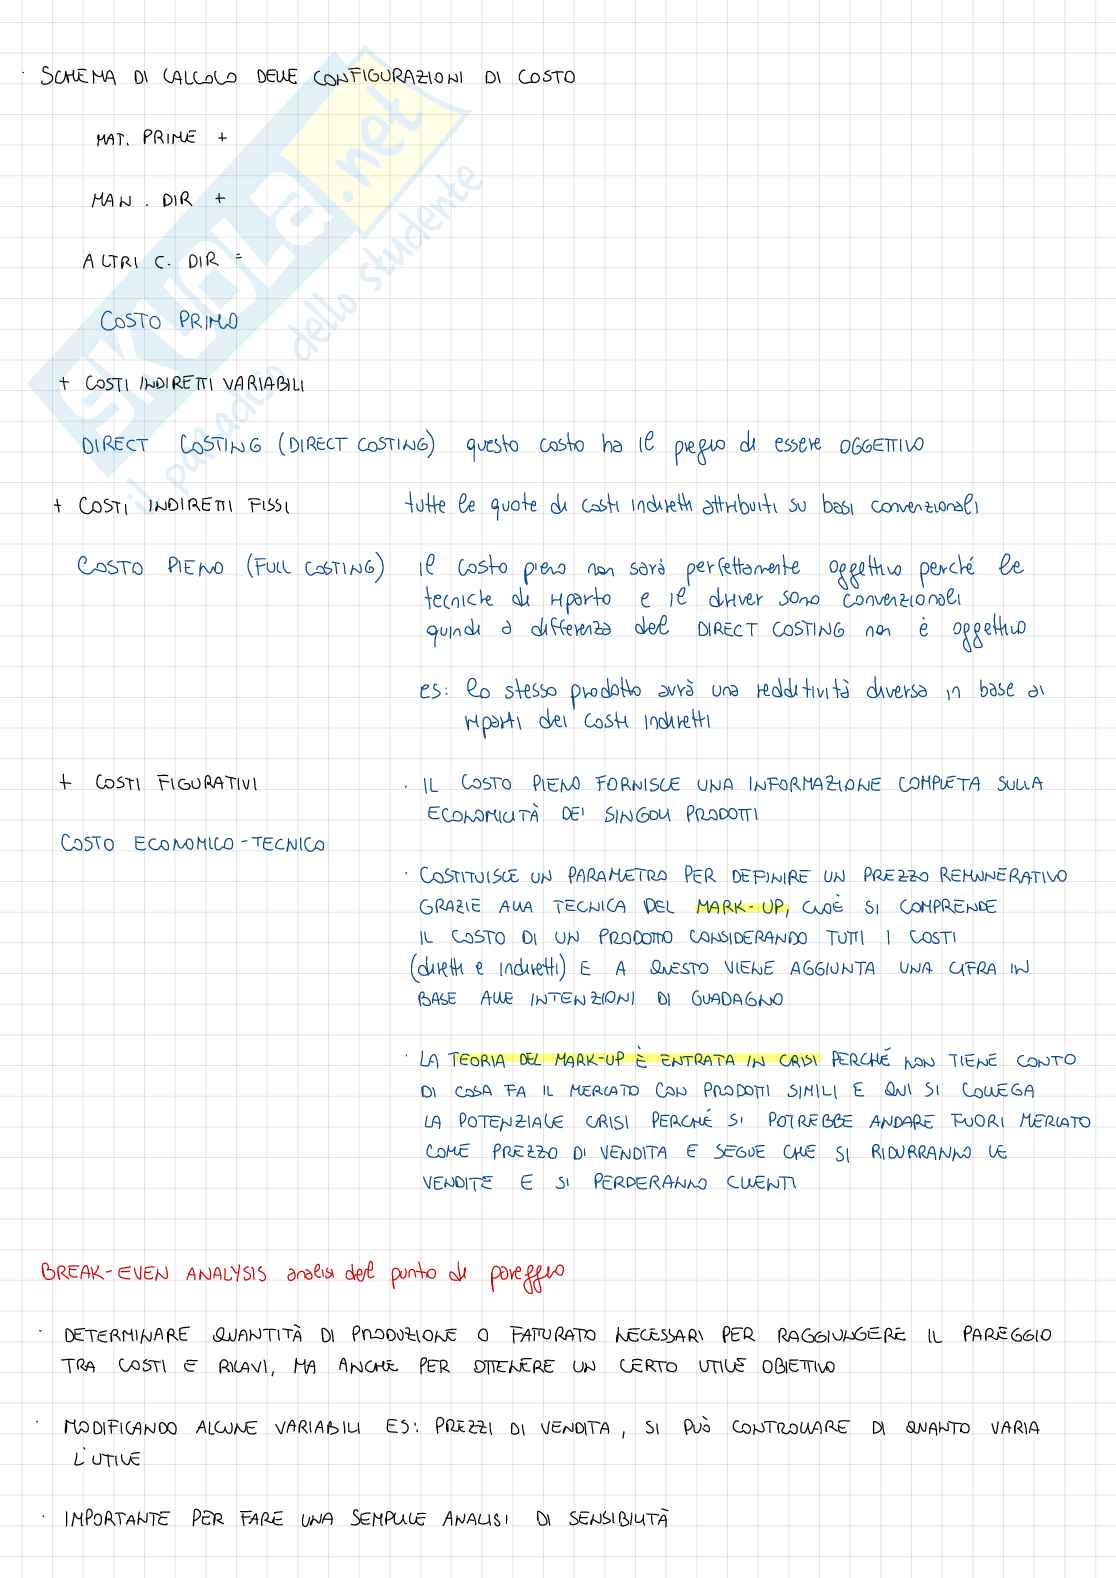 · SCHEMA DI CALCOLO DELLE CONFIGURAZIONI DI COSTO
MAT. PRIME +
MAN. DIR +
ALTRI C. DIR =
COSTO PRIMO
+ COSTI INDIRETTI VARIABILI
DIRECT COSTING (DIRECT COSTING) questo costo ha il pregio di essere OGGETTIVO
+ COSTI INDIRETTI FISSI tutte le quote di costi indiretti attribuiti su basi convenzionali
COSTO PIENO (FULL COSTING) il costo pieno non sarà perfettamente oggettivo perché le
tecniche di riparto e il driver sono convenzionali
quindi a differenza del DIRECT COSTING non è oggettivo
es: lo stesso prodotto avrà una redditività diversa in base ai
riparti dei costi indiretti
+ COSTI FIGURATIVI · IL COSTO PIENO FORNISCE UNA INFORMAZIONE COMPLETA SULLA
ECONOMICITÀ DEI SINGOLI PRODOTTI
COSTO ECONOMICO-TECNICO
· COSTITUISCE UN PARAMETRO PER DEFINIRE UN PREZZO REMUNERATIVO
GRAZIE ALLA TECNICA DEL MARK-UP, CIOÈ SI COMPRENDE
IL COSTO DI UN PRODOTTO CONSIDERANDO TUTTI I COSTI
(diretti e indiretti) E A QUESTO VIENE AGGIUNTA UNA CIFRA IN
BASE ALLE INTENZIONI DI GUADAGNO
· LA TEORIA DEL MARK-UP È ENTRATA IN CRISI PERCHÉ NON TIENE CONTO
DI COSA FA IL MERCATO CON PRODOTTI SIMILI E QUI SI COLLEGA
LA POTENZIALE CRISI PERCHÉ SI POTREBBE ANDARE FUORI MERCATO
COME PREZZO DI VENDITA E SEGUE CHE SI RIDURRANNO LE
VENDITE E SI PERDERANNO CLIENTI
BREAK-EVEN ANALYSIS analisi del punto di pareggio
· DETERMINARE QUANTITÀ DI PRODUZIONE O FATTURATO NECESSARI PER RAGGIUNGERE IL PAREGGIO
TRA COSTI E RICAVI, MA ANCHE PER OTTENERE UN CERTO UTILE OBIETTIVO
· MODIFICANDO ALCUNE VARIABILI ES: PREZZI DI VENDITA, SI PUÒ CONTROLLARE DI QUANTO VARIA
L'UTILE
· IMPORTANTE PER FARE UNA SEMPLICE ANALISI DI SENSIBILITÀ
SKUOLA.net
il paradiso dello studente